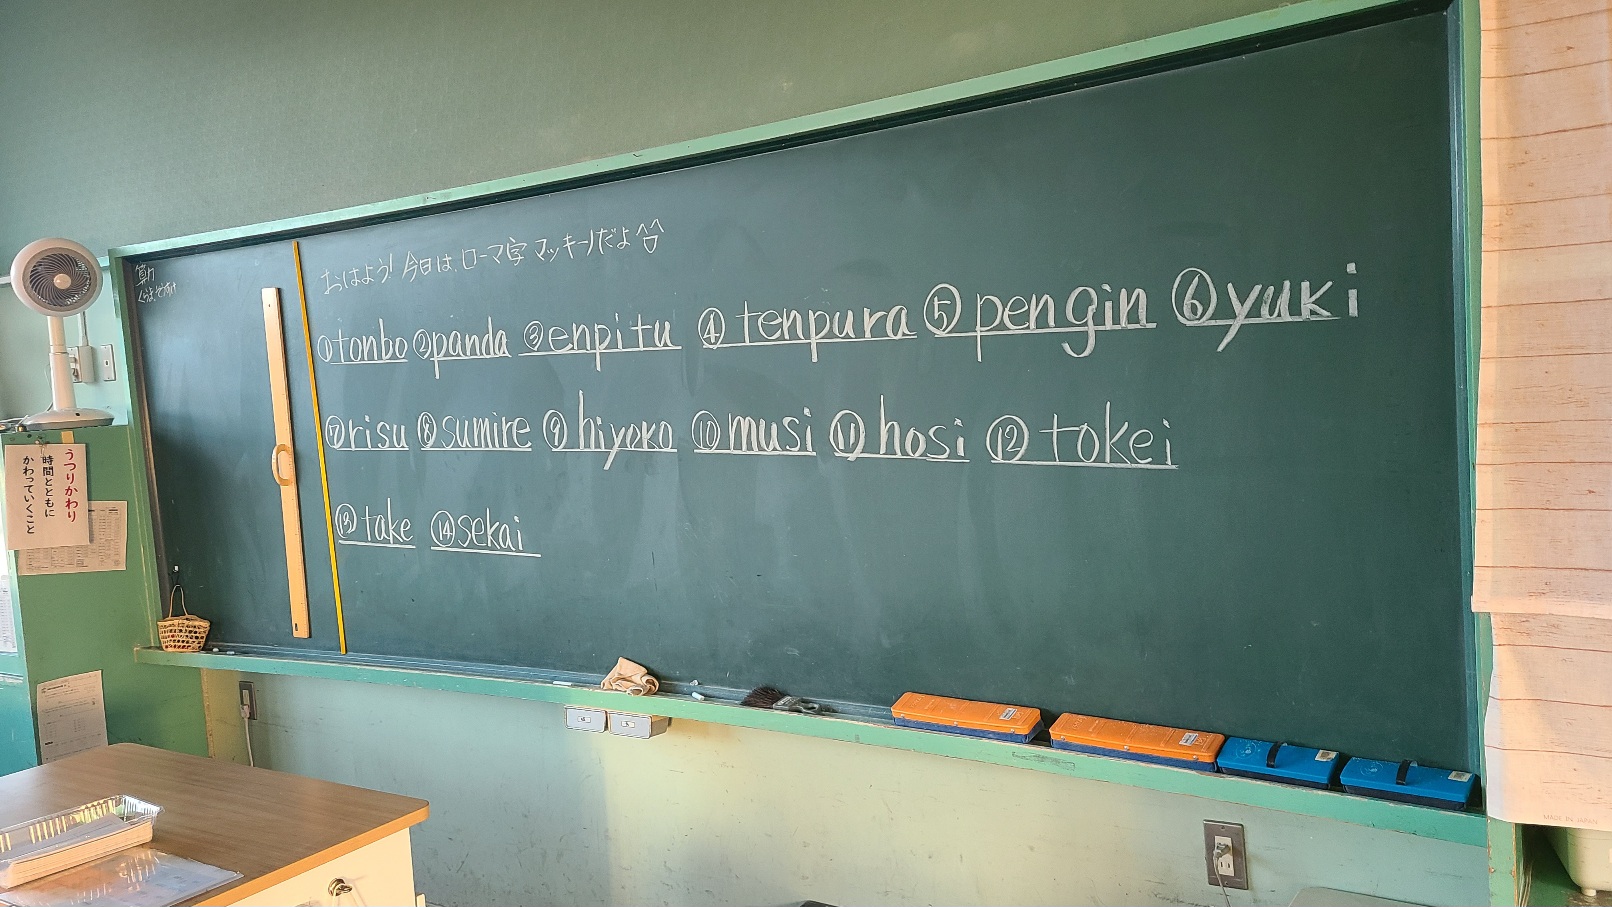 算力
おはよう! 今日は、ローマ字 マッキーノだよ
①tonbo ②panda ③enpitu ④tenpura ⑤pengin ⑥yuki
⑦risu ⑧sumire ⑨hiyoko ⑩musi ⑪hosi ⑫tokei
⑬take ⑭sekai
うつりかわり
時間とともに
かわっていくこと
MADE IN JAPAN